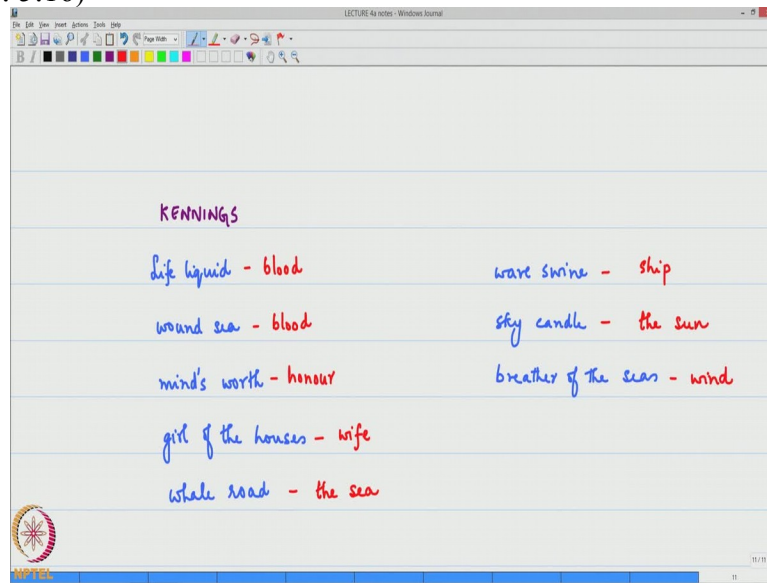 LECTURE 4a notes - Windows Journal
File Edit View Insert Actions Tools Help
Page Width
B I
KENNINGS
life liquid - blood
wound sea - blood
mind's worth - honour
girl of the houses - wife
whale road - the sea
wave swine - ship
sky candle - the sun
breather of the seas - wind
NPTEL
11/11
11